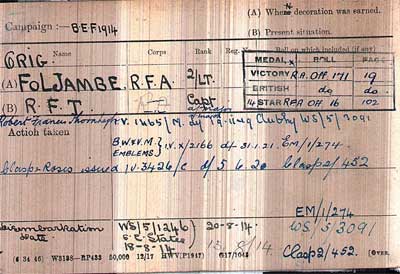 (A) Where decoration was earned.
Campaign :— BEF 1914
(B) Present situation.
Name Corps Rank Reg. No. Roll on which included (if any)
ORIG.
MEDAL ROLL PAGE
(A) FOLJAMBE. R.F.A. 2/LT. VICTORY R.A. Off 171 19
BRITISH do do
(B) R.F.T. Capt 14 STAR RFA Off 16 102
Robert Francis
Action taken
B.W. & V.M. } IV.X/2166 d/ 31.1.21. EM/1/274
EMBLEMS }
Clasp & Roses issued IV. 3426/C d/ 5.6.20 Clasp 2/452
EM/1/274
Disembarkation WS/5/1246) 20-8-14. WS/5/3091
date S.C. States)
18-8-14 13/8/14 Clasp 2/452. [OVER.
(6 34 46) W5198—RP433 50,000 12/17 HWV(P1947) G17/1043